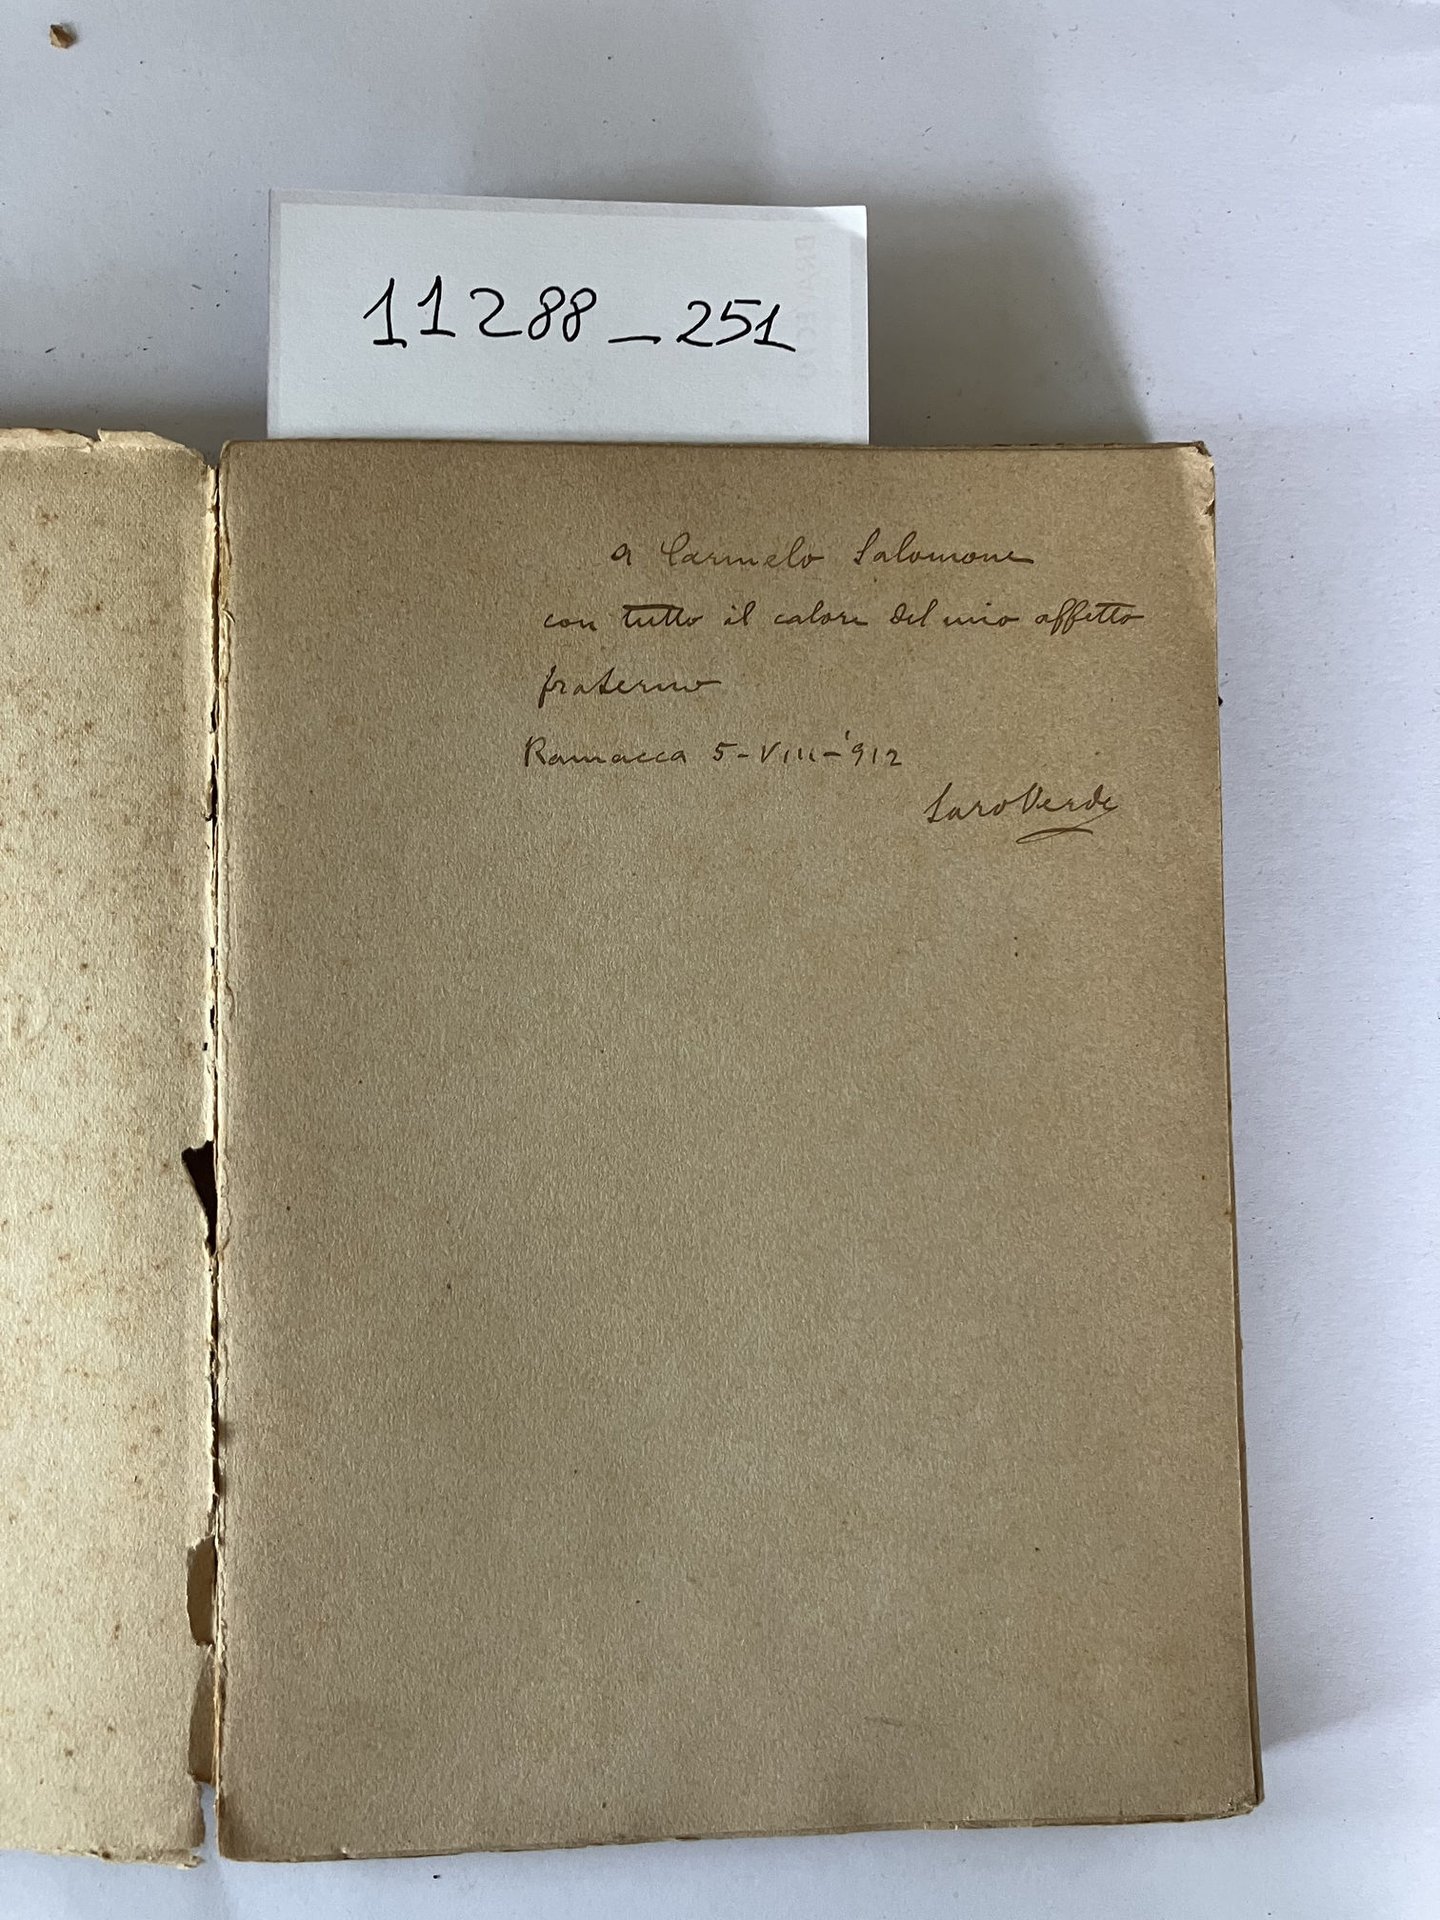 11288_251
a Carmelo Salomone
con tutto il calore del mio affetto
fraterno
Ramacca 5-VIII-'912
Saro Verde